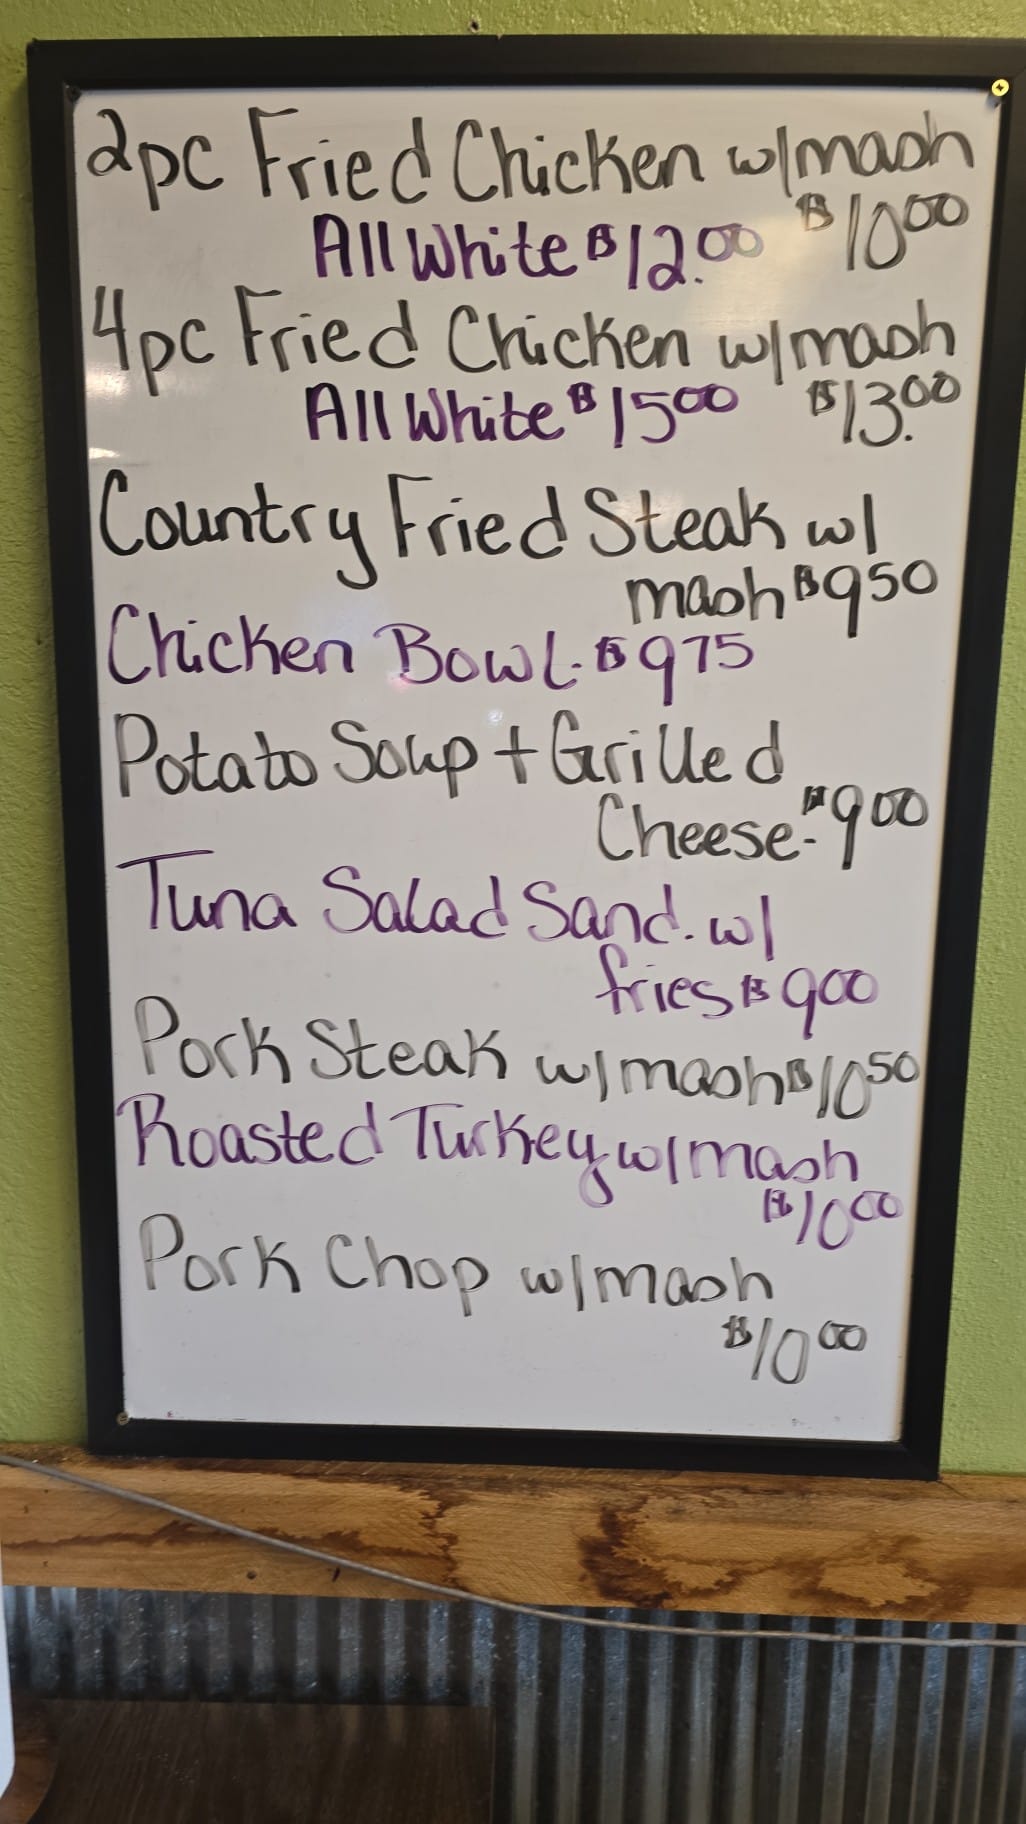 2pc Fried Chicken w/mash
All White $12.00 $10.00
4pc Fried Chicken w/mash
All White $15.00 $13.00
Country Fried Steak w/
mash $9.50
Chicken Bowl - $9.75
Potato Soup + Grilled
Cheese - $9.00
Tuna Salad Sand. w/
fries $9.00
Pork Steak w/mash $10.50
Roasted Turkey w/mash
$10.00
Pork Chop w/mash
$10.00